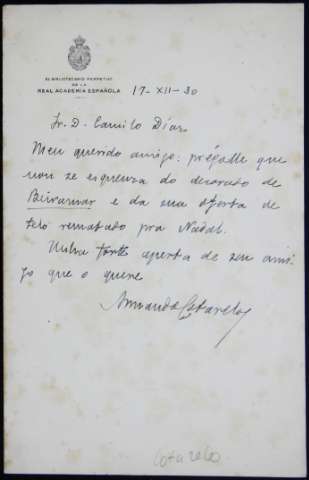 EL BIBLIOTECARIO PERPETUO
DE LA
REAL ACADEMIA ESPAÑOLA
17-XII-30
Sr. D. Camilo Díaz
Meu querido amigo: prégolle que
non se esquenza do decorado de
Beiramar e da sua oferta de
telo rematado pra Nadal.
Unha forte aperta de seu ami-
go que o quere
Armando Cotarelo
Cotarelo